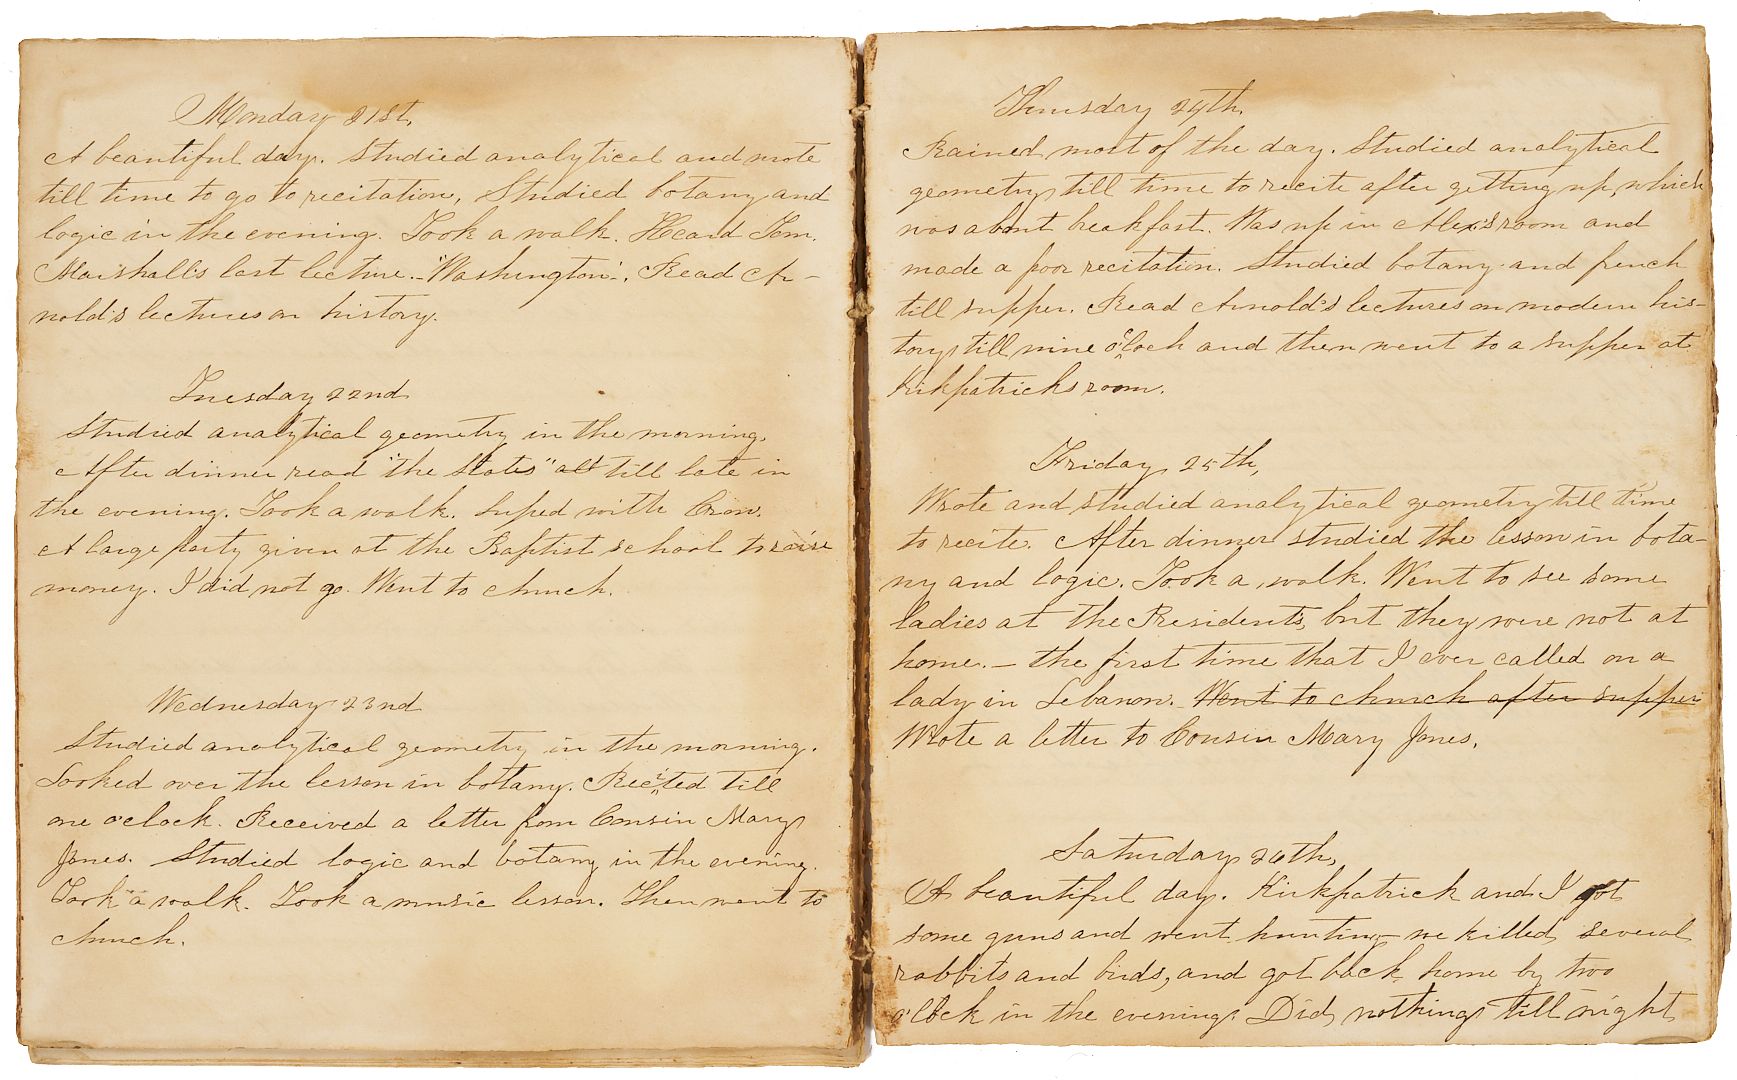 Monday 21st,
A beautiful day. Studied analytical and wrote
till time to go to recitation, Studied botany and
logic in the evening. Took a walk. Heard Tom.
Marshall's last lecture.- "Washington". Read Ar-
nold's lectures on history.
Tuesday 22nd
Studied analytical geometry in the morning.
After dinner read "the Slates" till late in
the evening. Took a walk. Suped with Crow.
A large party given at the Baptist school to raise
money. I did not go. Went to church.
Wednesday 23nd
Studied analytical geometry in the morning.
Looked over the lesson in botany. Recited till
one o'clock. Received a letter from Cousin Mary
Jones. Studied logic and botany in the evening.
Took a walk. Took a music lesson. Then went to
church.
Thursday 24th,
Rained most of the day. Studied analytical
geometry till time to recite after getting up, which
was about breakfast. Was up in Alex's room and
made a poor recitation. Studied botany and french
till supper. Read Arnold's lectures on modern his-
tory till nine o'clock and then went to a supper at
Kirkpatricks room.
Friday 25th,
Wrote and studied analytical geometry till time
to recite. After dinner studied the lesson in bota-
ny and logic. Took a walk. Went to see some
ladies at the Presidents, but they were not at
home.— the first time that I ever called on a
lady in Lebanon. Went to church after supper
Wrote a letter to Cousin Mary Jones.
Saturday 26th,
A beautiful day. Kirkpatrick and I got
some guns and went hunting— we killed several
rabbits and birds, and got back home by two
o'clock in the evening. Did nothing till night